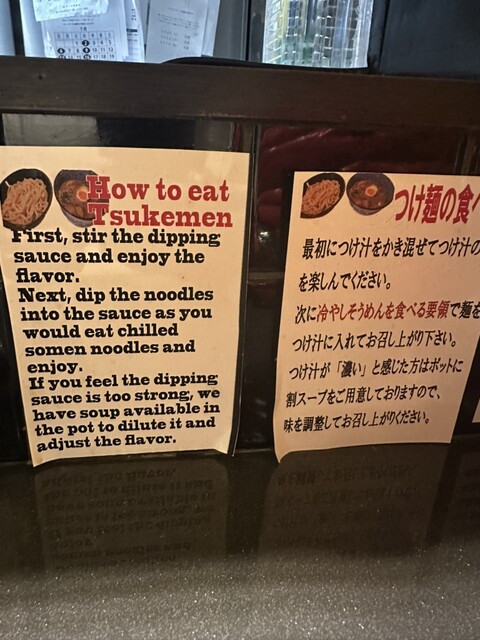 How to eat
Tsukemen
First, stir the dipping
sauce and enjoy the
flavor.
Next, dip the noodles
into the sauce as you
would eat chilled
somen noodles and
enjoy.
If you feel the dipping
sauce is too strong, we
have soup available in
the pot to dilute it and
adjust the flavor.
つけ麺の食べ
最初につけ汁をかき混ぜてつけ汁の
を楽しんでください。
次に冷やしそうめんを食べる要領で麺を
つけ汁に入れてお召し上がり下さい。
つけ汁が「濃い」と感じた方はポットに
割スープをご用意しておりますので、
味を調整してお召し上がりください。